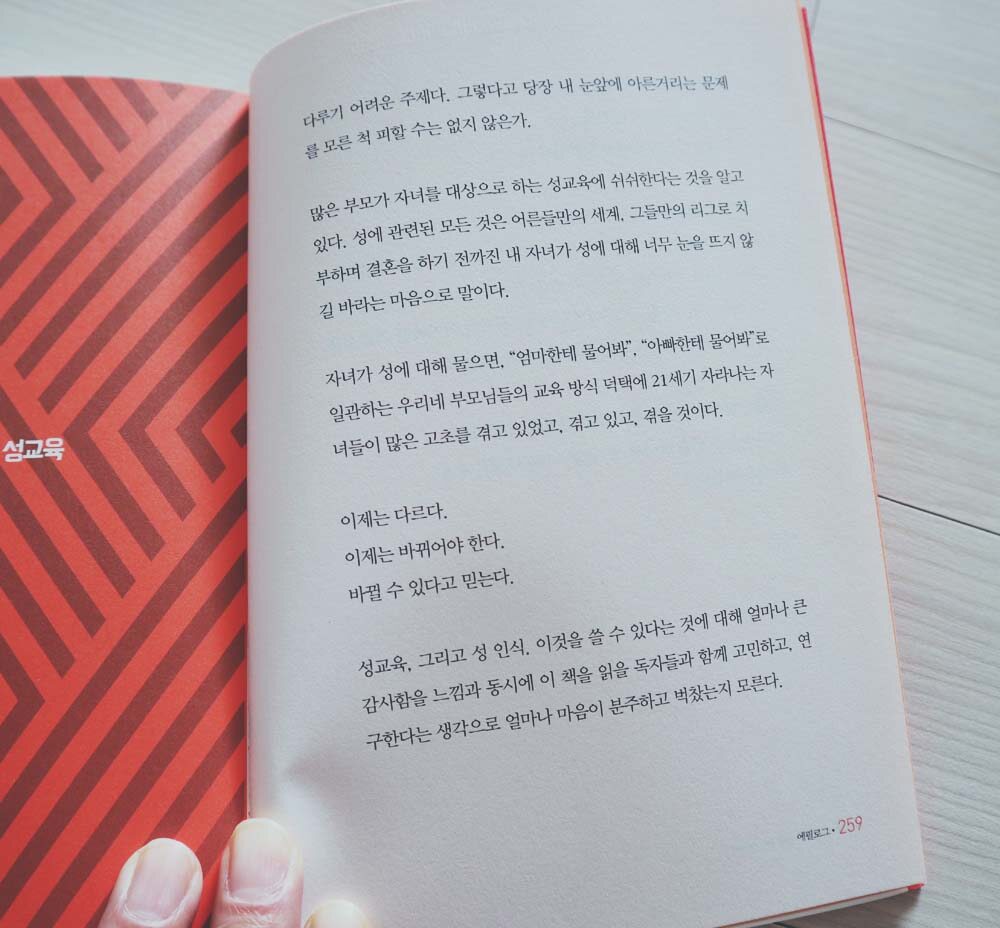 성교육
다루기 어려운 주제다. 그렇다고 당장 내 눈앞에 아른거리는 문제
를 모른 척 피할 수는 없지 않은가.
많은 부모가 자녀를 대상으로 하는 성교육에 쉬쉬한다는 것을 알고
있다. 성에 관련된 모든 것은 어른들만의 세계, 그들만의 리그로 치
부하며 결혼을 하기 전까진 내 자녀가 성에 대해 너무 눈을 뜨지 않
길 바라는 마음으로 말이다.
자녀가 성에 대해 물으면, “엄마한테 물어봐”, “아빠한테 물어봐”로
일관하는 우리네 부모님들의 교육 방식 덕택에 21세기 자라나는 자
녀들이 많은 고초를 겪고 있었고, 겪고 있고, 겪을 것이다.
이제는 다르다.
이제는 바뀌어야 한다.
바뀔 수 있다고 믿는다.
성교육, 그리고 성 인식. 이것을 쓸 수 있다는 것에 대해 얼마나 큰
감사함을 느낌과 동시에 이 책을 읽을 독자들과 함께 고민하고, 연
구한다는 생각으로 얼마나 마음이 분주하고 벅찼는지 모른다.
에필로그 • 259